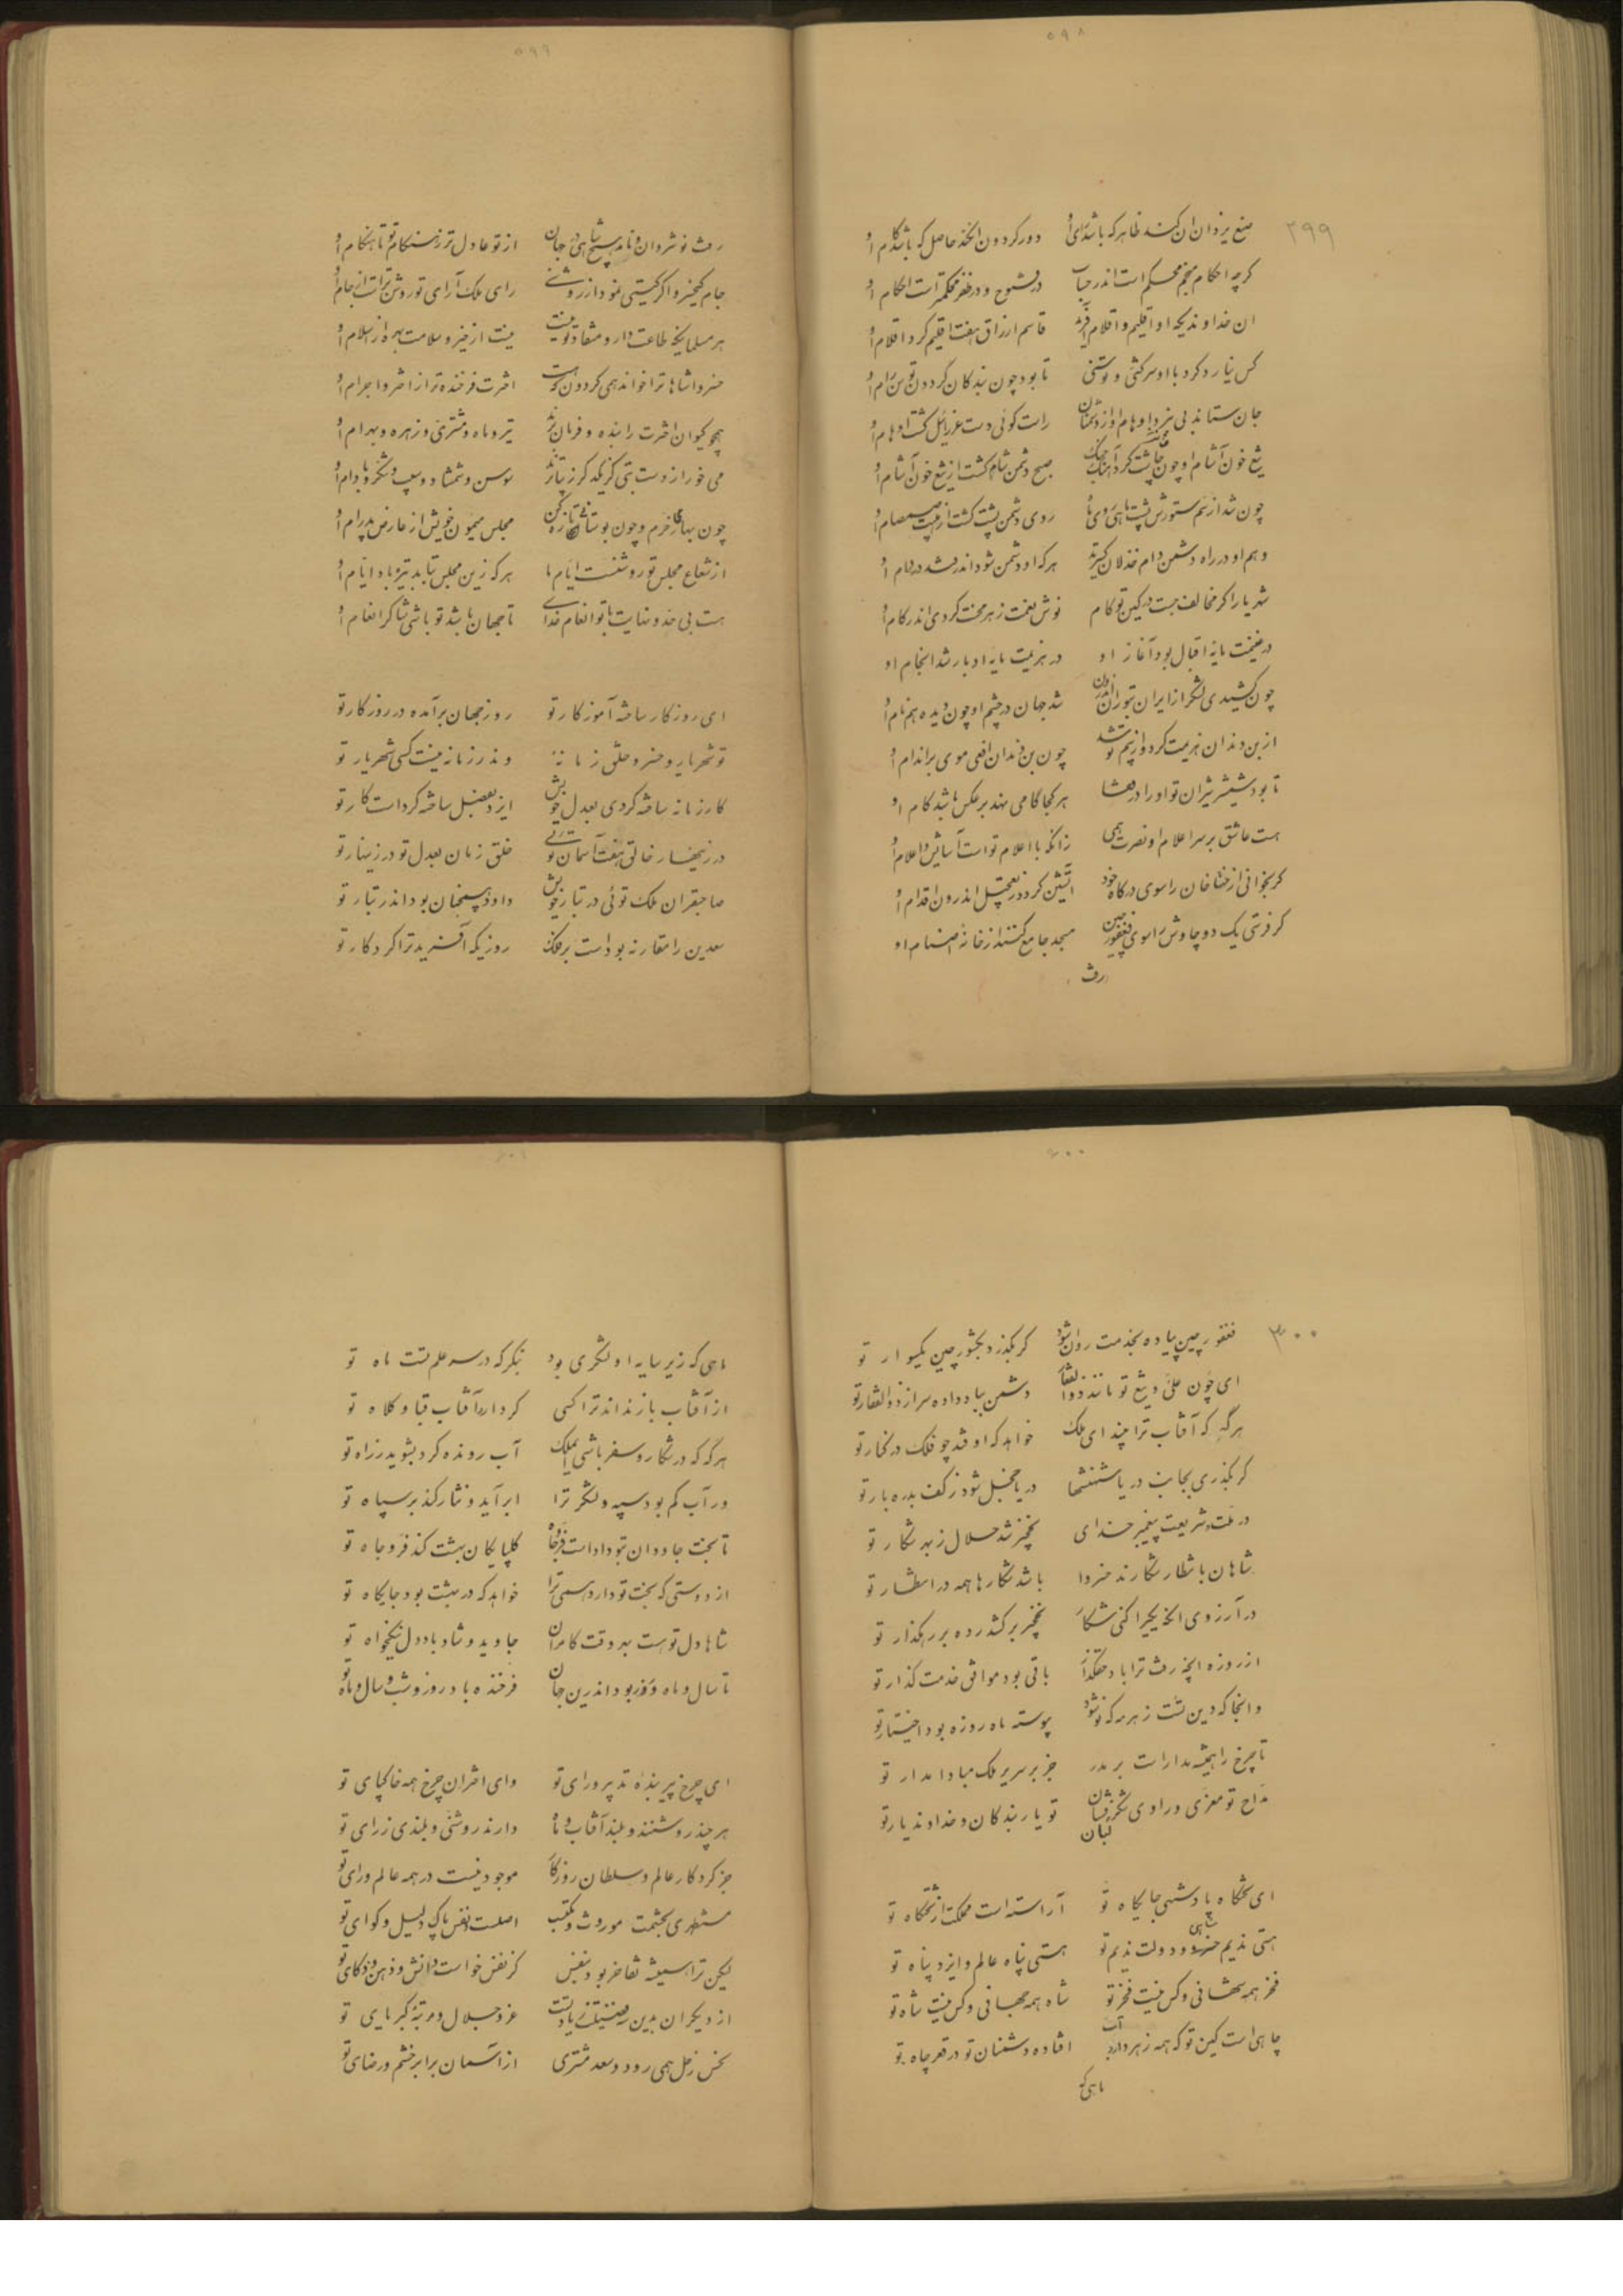 ۵۹۸
۲۹۹
صنع یزدان ان کند ظاهر که باشد رای او دور کردون آن کند حاصل که باشد کام او
کرچه احکام منجم محکم است اندر حساب در فتوح و در ظفر محکمترات احکام او
ان خداوندیکه او اقلیم و اقلام افرید قاسم ارزاق هفت اقلیم کرد اقلام او
کس نیارد کرد با او سرکشی و توسنی تا بود چون بندکان کردون توسن رام او
جان ستاند بی نبرد اوهام او از دشمنان راست کوئی دست عزرائیل کشت اوهام او
تیغ خون آشام او چون چاشت کرد آهنک جنک صبح دشمن شام کشت از تیغ خون آشام او
چون شد از سم ستورش پشت ماهی روی ما روی دشمن پشت کشت از هیبت صمصام او
وهم او در راه دشمن دام خذلان کسترید هرکه او دشمن شود اندر فتد در دام او
شهریارا کر مخالف جست در کین تو کام نوش نعمت زهر محنت کردی اندر کام او
در غنیمت مایهٔ اقبال بود آغاز او در هزیمت مایهٔ ادبار شد انجام او
چون کشیدی لشکر از ایران بتوران اندرون شد جهان در چشم او چون دیده هم نام او
از بن دندان هزیمت کرد و از بیم تو شد چون بن دندان افعی موی بر اندام او
تا بود شمشیر شیران تو او را در قفا هر کجا کامی نهد بر عکس باشد کام او
هست عاشق بر سر اعلام او نصرت همی زانکه با اعلام تو است آسایش اعلام او
کر بخوانی از ختا خان را سوی درکاه خود آتشین کردد ز تعجیل اندرون اقدام او
کر فرستی یک دو چاوش را سوی فغفور چین مسجد جامع کنند از خانهٔ اصنام او
رفت
۵۹۹
رفت نوشروان و نامد هیچ شاهی در جهان از تو عادل تر ز هنکام تو تا هنکام او
جام کیخسرو اکر کیتی نمود از روشنی رای ملک آرای تو روشن تر است از جام او
هر مسلمانیکه طاعت دار و منقاد تو نیست نیست از خیر و سلامت بهره از اسلام او
خسروا شاها ترا خواند همی کردون که هست اخترت فرخنده تر از اختر و اجرام او
همچو کیوان اخترت را بنده و فرمان برند تیر و ماه و مشتری و زهره و بهرام او
می خور از دست بتی کز یکدکر زیباترند سوسن و شمشاد و سیب و شکر و بادام او
چون بهاری خرم و چون بوستانی تازه کن مجلس میمون خویش از عارض پدرام او
از شعاع مجلس تو روشنست ایام ما هرکه زین مجلس بتابد تیره باد ایام او
هست بی حد و نهایت با تو انعام خدای تا جهان باشد تو باشی شاکر انعام او
ای روزکار ساخته آموزکار تو روز جهان برآمده در روزکار تو
تو شهریار و خسرو خلق زمانه واندر زمانه نیست کسی شهریار تو
کار زمانه ساخته کردی بعدل خویش ایزد بفضل ساخته کردست کار تو
در زینهار خالق هفت آسمان توئی خلق زمان بعدل تو در زینهار تو
صاحبقران ملک توئی در تبار خویش واو ذو همچنان بود اندر تبار تو
سعدین را مقارنه بودست بر فلک روزیکه آفرید ترا کردکار تو
۶۰۰
۳۰۰
فغفور چین پیاده بخدمت روان شود کر بکذرد بکشور چین یکسوار تو
ای چون علی و تیغ تو مانند ذوالفقار دشمن بباد داده سر از ذوالفقار تو
هر که که آفتاب ترا بیند ای ملک خواهد که اوفتد چو فلک در کنار تو
کر بکذری بجانب دریا شهنشها دریا خجل شود ز کف بدره بار تو
در ملت و شریعت پیغمبر خدای نخجیر شد حلال ز بهر شکار تو
شاهان بانتظار شکارند خسروا باشد شکارها همه در انتظار تو
در آرزوی انکه یکیرا کنی شکار نخجیر برکشد رده بر رهکذار تو
از روزه انچه رفت ترا باد حقکذار باقی بود موافق خدمت کذار تو
وانجا که دین تست ز هر مه که نو شود پیوسته ماه روزه بود اختیار تو
تا چرخ را همیشه مدارات بر مدر جز بر سریر ملک مبادا مدار تو
مداح تو معزی و راوی شکر فشان تو یار بندکان و خداوند یار تو
لبان
ای تختکاه پادشهی جایکاه تو آراسته است مملکت از تختکاه تو
هستی ندیم خسرو و دولت ندیم تو هستی پناه عالم و ایزد پناه تو
شاهی
فخر همه شهانی و کس نیست فخر تو شاه همه جهانی و کس نیست شاه تو
چاهی است کین تو که همه زهر دارد آب افتاده دشمنان تو در قعر چاه تو
ماهی که
۶۰۱
ماهی که زیر سایهٔ او لشکری بود بنکر که در سر علم تست ماه تو
از آفتاب باز نداند ترا کسی کر دارد آفتاب قبا و کلاه تو
هر که که در شکار و سفر باشی ای ملک آب رونده کرد بشوید ز راه تو
ور آب کم بود سپه و لشکر ترا ابر آید و نثار کند بر سپاه تو
تا بخت جاودان بتو دادست فر و جاه کلپایکان بهشت کند فر و جاه تو
از دوستی که بخت تو دارد همی ترا خواهد که در بهشت بود جایکاه تو
شاها دل تو هست بهر وقت کامران جاوید و شاد باد دل نیکخواه تو
تا سال و ماه و روز بود اندرین جهان فرخنده باد روز و شب و سال و ماه تو
ای چرخ پیر بندهٔ تدبیر و رای تو وای اختران چرخ همه خاکپای تو
هرچند روشنند و بلند آفتاب و ماه دارند روشنی و بلندی ز رای تو
جز کردکار عالم و سلطان روزکار موجود نیست در همه عالم ورای تو
مستظهری بحشمت موروث و مکتسب اصلت و نفس پاک دلیل و کوای تو
لیکن ترا همیشه تفاخر بود بنفس کز نفس خواست دانش و ذهن و ذکای تو
از دیکران بدین صفت زیادتست عز و جلال و مرتبهٔ کبریایی تو
نحس زحل همی رود و سعد مشتری از آسمان برابر خشم و رضای تو